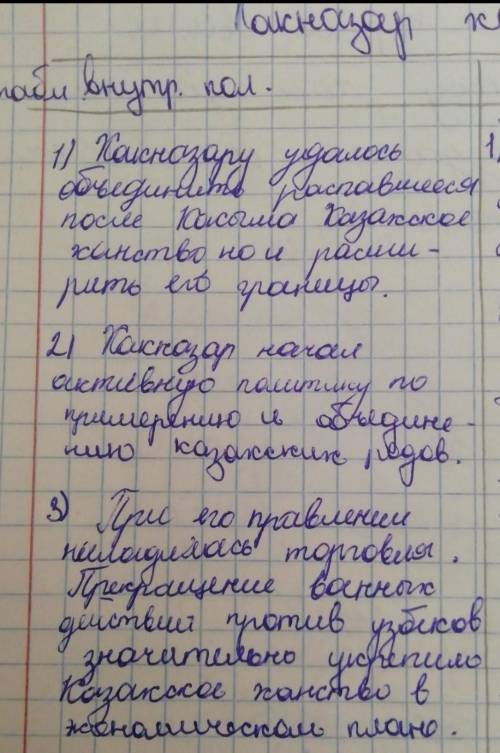 Хакназар
внутр. пол.
1) Хакназару удалось
объединить распавшееся
после Касыма Казахское
ханство но и расши-
рить его границы.
2) Хакназар начал
активную политику по
примерению и объедине-
нию казахских родов.
3) При его правлении
наладилась торговля.
Прекращение военных
действий против узбеков
значительно укрепило
Казахское ханство в
экономическом плане.
1)